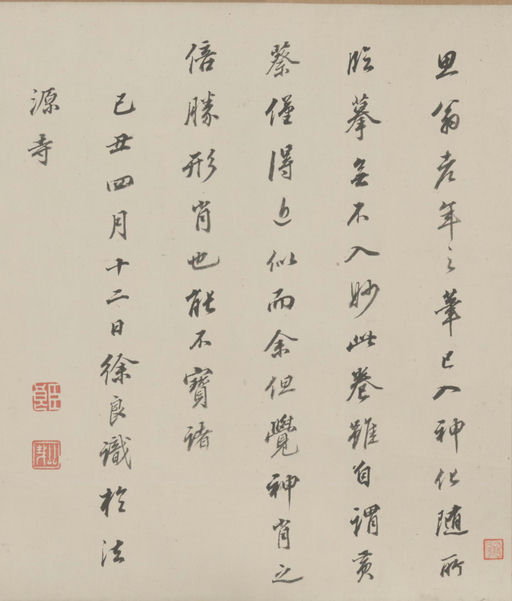 思翁老年之筆已入神化随所
臨摹無不入妙此卷雖自謂黄
蔡僅得近似而余但覺神肖之
倍勝形肖也能不寶諸
己丑四月十二日徐良識於法
源寺